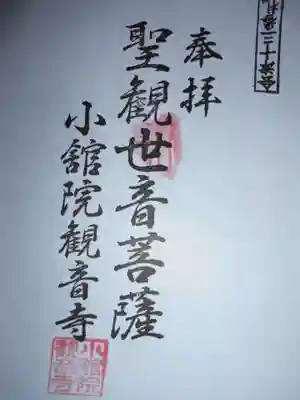 会津十三番札
奉拝
聖観世音菩薩
小舘院観音寺